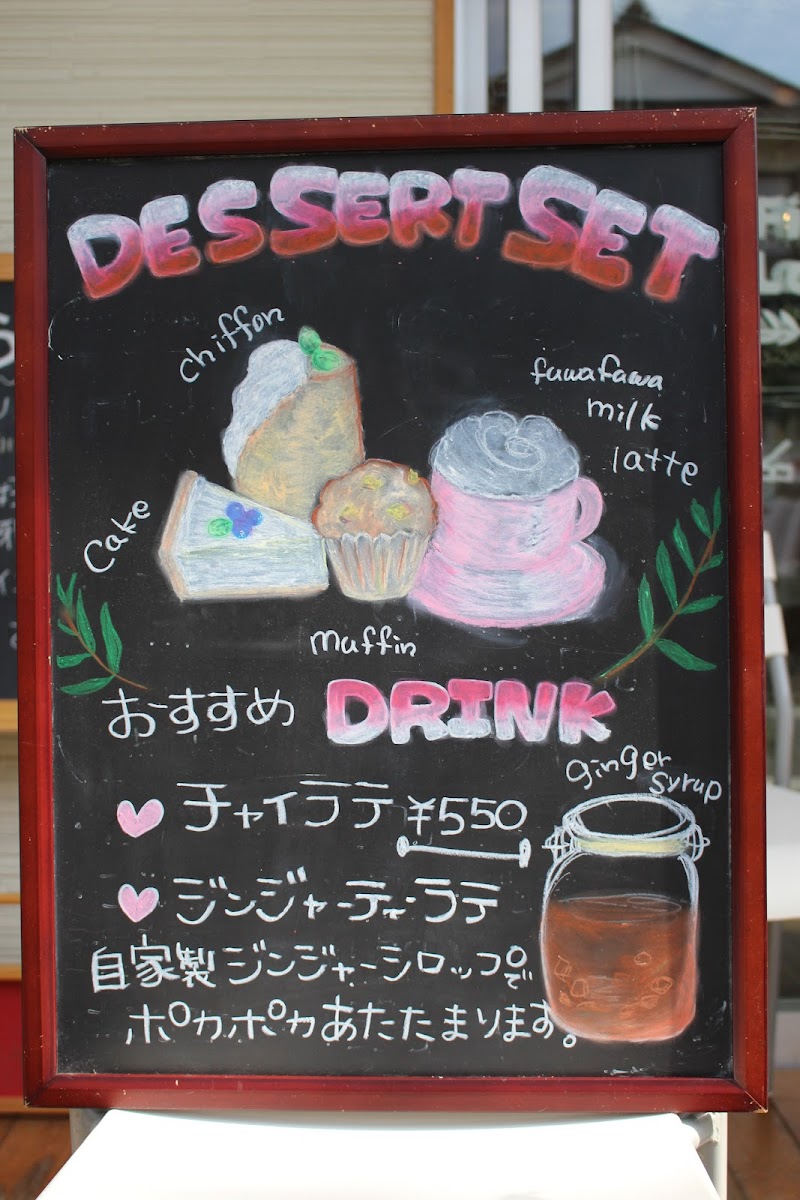 DESSERT SET
chiffon
fuwafuwa
milk
latte
Cake
muffin
おすすめ DRINK
ginger
syrup
チャイラテ ¥550
ジンジャーティーラテ
自家製ジンジャーシロップで
ポカポカあたたまります。